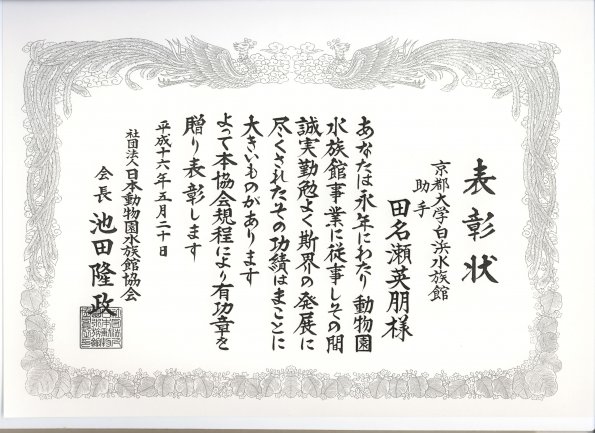 表彰状
京都大学白浜水族館
助手
田名瀬英朋様
あなたは永年にわたり動物園
水族館事業に従事しその間
誠実勤勉よく斯界の発展に
尽くされたその功績はまことに
大きいものがあります
よって本協会規程により有功章を
贈り表彰します
平成十六年五月二十日
社団法人日本動物園水族館協会
会長 池田隆政